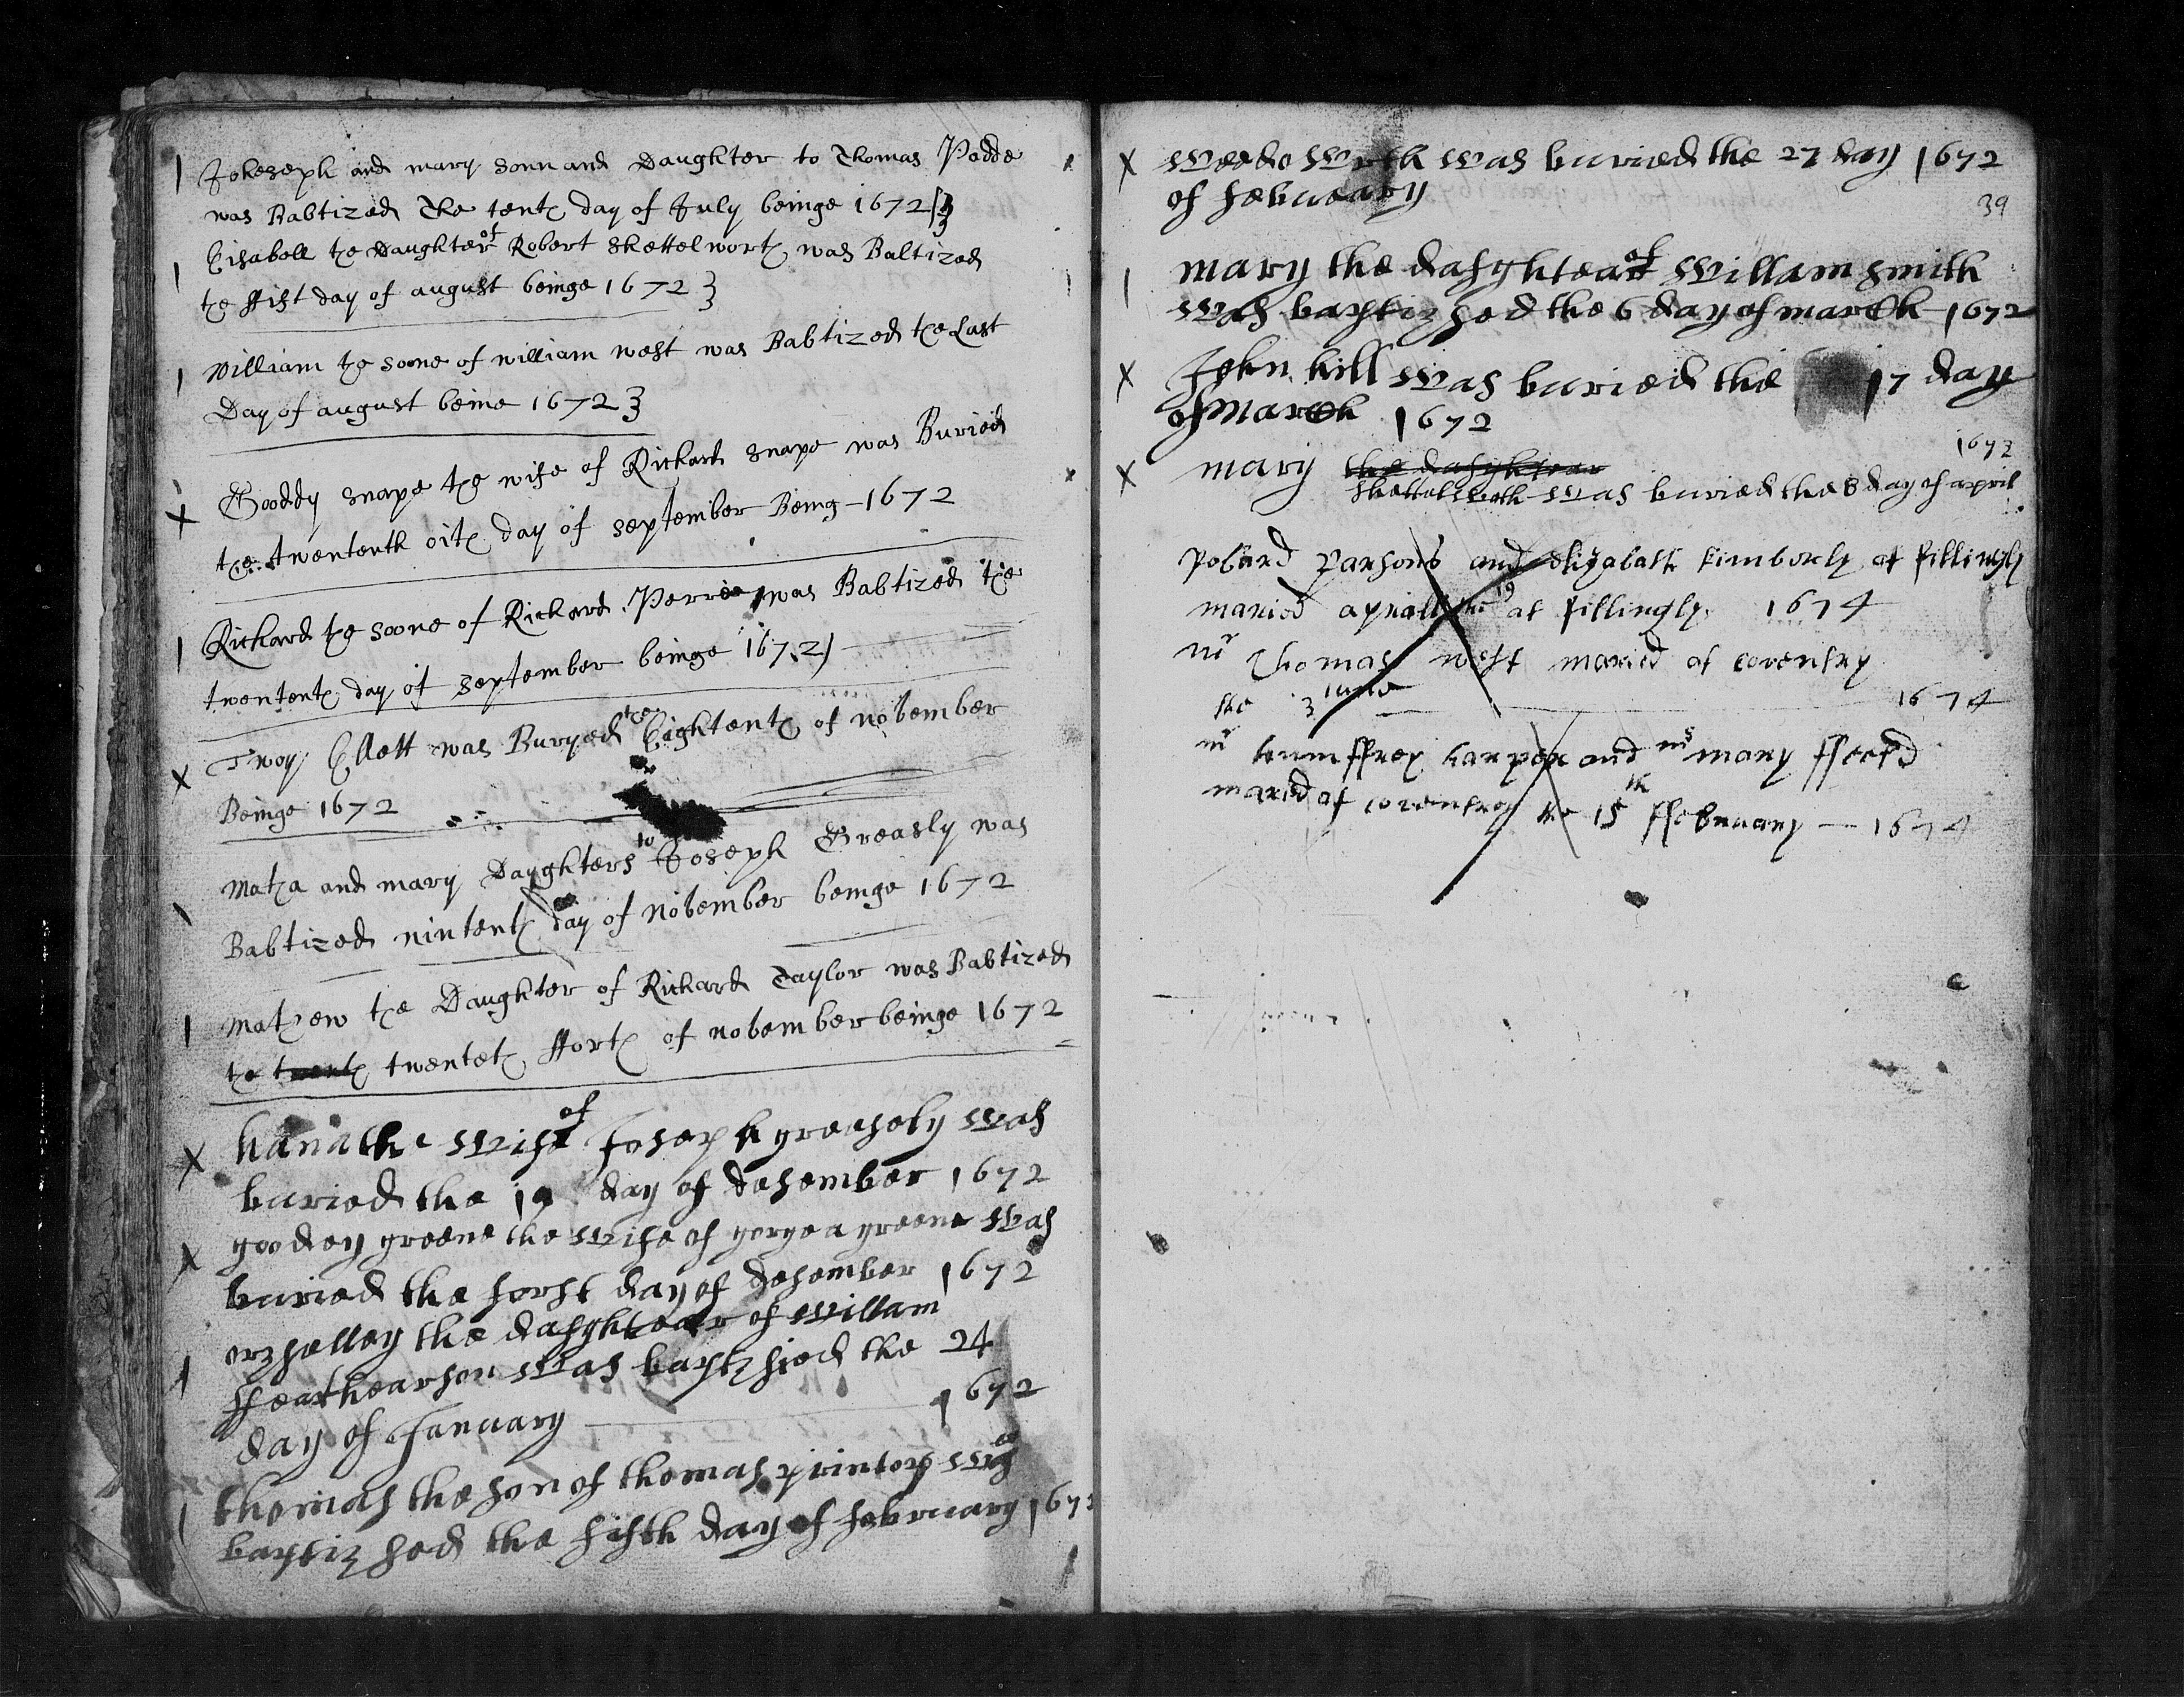 Joheseph and mary sonn and Daughter to Thomas Padde
was Babtized The tenth day of July beinge 1672
Eisabell the Daughter of Robert Shettelworth was Babtized
the ffist day of august beinge 1672
William the soone of william west was Babtized the Last
Day of august beine 1672
Gooddy snape the wife of Richard snape was Buried
the twententh oith day of september Being - 1672
Richard the soone of Richard Perree was Babtized the
twententh day of september beinge 1672
Troy Ellett was Buryed the Eightenth of nobember
Beinge 1672
Matha and mary Daughters to Joseph Greasly was
Babtized nintenth day of Nobember beinge 1672
Mathew the Daughter of Richard Taylor was Babtized
the twenteth fforth of nobember beinge 1672
hana the wife of Joseph greesely was
buried the 19 day of desember 1672
goodey greene the wife of gorgea greene was
buried the forst day of desember 1672
orzselley the dasghtear of willam
ffeathearson was baptzsied the 24
day of January 1672
thomas the son of thomas printop was
baptizsed the fifth day of february 167
was buried the 27 day 1672
of febueary
39
mary the dasghtear of willam smith
was baptizsed the 6 day of march 1672
John hill was buried the 17 day
of march 1672
mary the dasghtear 1673
shettelworth was buried the 8 day of april
Robard Parsons and elizabath kimberly of fillingly
maried aprill the 19 at fillingly 1674
mr Thomas west maried at coventry
the 3 June 1674
mr humffrey harper and ms mary
maried at coventry the 15th ffebruary - 1674